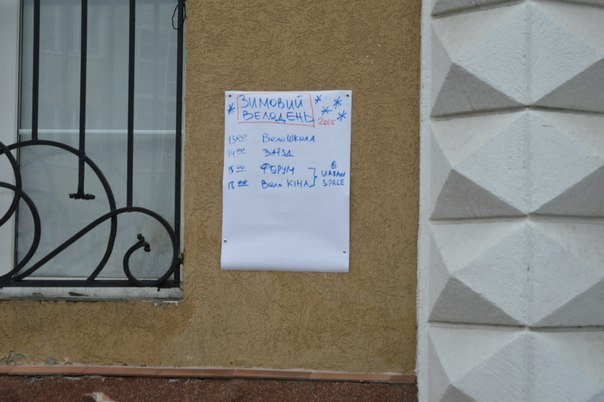 ЗИМОВИЙ
ВЕЛОДЕНЬ
2015
13:00 ВелоШКОЛА
14:00 ЗАЇЗД
ФОРУМ
18:00 Вело КІНА
@ URBAN
SPACE